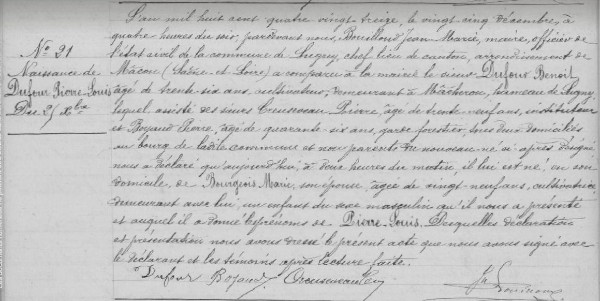 L'an mil huit cent quatre vingt treize, le vingt cinq décembre, à
quatre heures du soir, pardevant nous Jean Marie, maire, officier de
l'état civil de la commune de Lugny, chef lieu de canton, arrondissement de
Mâcon (Saône et Loire) a comparu à la mairie le sieur Dufour Benoît
âgé de trente six ans, cultivateur, demeurant à Mâcheron, hameau de Lugny,
lequel assisté des sieurs Pierre, âgé de trente neuf ans, instituteur
et Pierre, âgé de quarante six ans, garde forestier, tous deux domiciliés
au bourg de ladite commune et non parents du nouveau né ci après désigné
nous a déclaré qu'aujourd'hui, à deux heures du matin, il lui est né, en son
domicile, de Bourgeois Marie, son épouse, âgée de vingt neuf ans, cultivatrice,
demeurant avec lui, un enfant du sexe masculin qu'il nous a présenté
et auquel il a donné les prénoms de Pierre Louis. Desquelles déclaration
et présentation nous avons dressé le présent acte que nous avons signé avec
le déclarant et les témoins après lecture faite.
Dufour
No 21
Naissance de
Dufour Pierre Louis
Du 25 Xbre